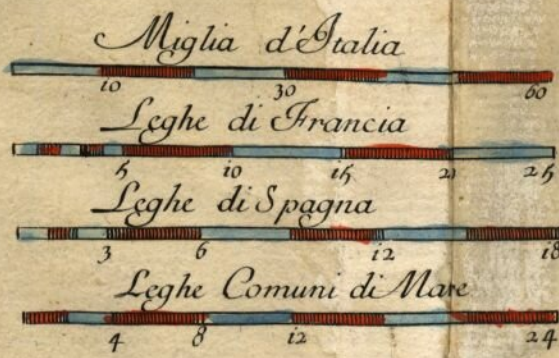 Miglia d'Italia
10 30 60
Leghe di Francia
5 10 15 2 25
Leghe di Spagna
3 6 12 18
Leghe Comuni di Mare
4 8 12 24